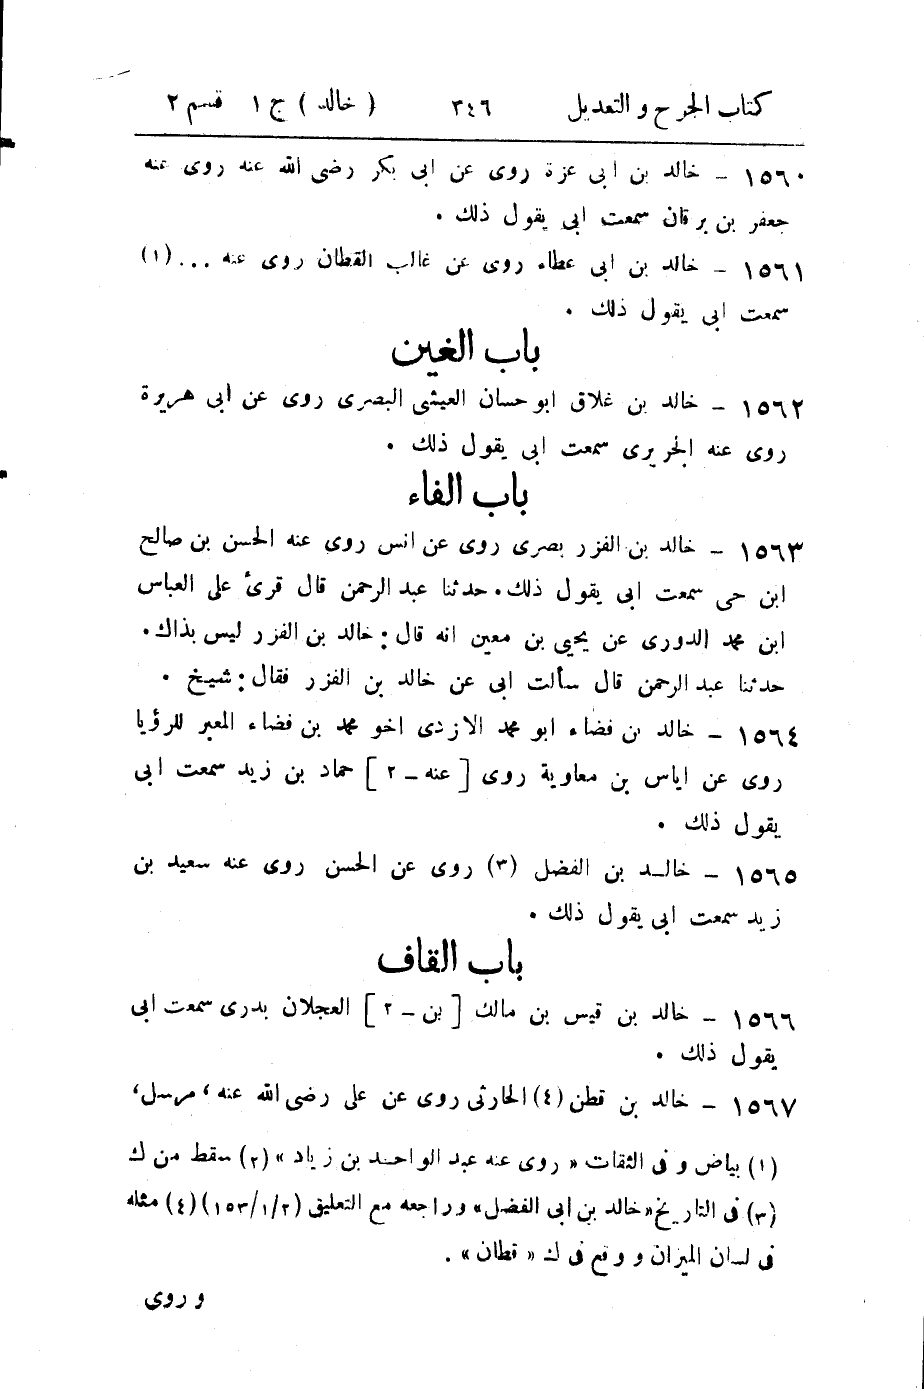 كتاب الجرح والتعديل ٣٤٦ (خالد) ج ١ قسم ٢
١٥٦٠ - خالد بن ابى عزة روى عن ابى بكر رضى الله عنه روى عنه
جعفر بن برقان سمعت ابى يقول ذلك .
١٥٦١ - خالد بن ابى عطاء روى عن غالب القطان روى عنه ...(١)
سمعت ابى يقول ذلك .
باب الغين
١٥٦٢ - خالد بن غلاق ابو حسان العيشى البصرى روى عن ابى هريرة
روى عنه الجريرى سمعت ابى يقول ذلك .
باب الفاء
١٥٦٣ - خالد بن الفزر بصرى روى عن انس روى عنه الحسن بن صالح
ابن حى سمعت ابى يقول ذلك. حدثنا عبد الرحمن قال قرئ على العباس
ابن محمد الدورى عن يحيى بن معين انه قال: خالد بن الفزر ليس بذاك.
حدثنا عبد الرحمن قال سألت ابى عن خالد بن الفزر فقال: شيخ .
١٥٦٤ - خالد بن فضاء ابو محمد الازدى اخو محمد بن فضاء المعبر للرؤيا
روى عن اياس بن معاوية روى [عنه - ٢] حماد بن زيد سمعت ابى
يقول ذلك .
١٥٦٥ - خالد بن الفضل (٣) روى عن الحسن روى عنه سعيد بن
زيد سمعت ابى يقول ذلك .
باب القاف
١٥٦٦ - خالد بن قيس بن مالك [بن - ٢] العجلان بدرى سمعت ابى
يقول ذلك .
١٥٦٧ - خالد بن قطن (٤) الحارثى روى عن على رضى الله عنه ، مرسل ،
(١) بياض و فى الثقات « روى عنه عبد الواحد بن زياد » (٢) سقط من ك
(٣) فى التاريخ « خالد بن ابى الفضل » وراجعه مع التعليق (١٥٣/١/٢) (٤) مثله
فى لسان الميزان و وقع فى ك « قطان » .
و روى